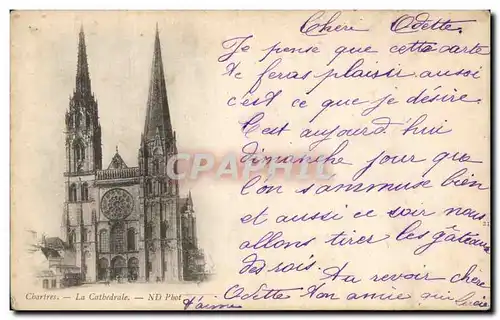 Chère Odette.
Je pense que cette carte
te feras plaisir aussi
c'est ce que je désire.
C'est aujourd'hui
dimanche jour que
l'on s'ammuse bien
et aussi ce soir nous
allons tirer les gâteaux
des rois. Au revoir chère
Odette ton amie qui
t'aime
Chartres. - La Cathédrale. - ND Phot
CPARAMA